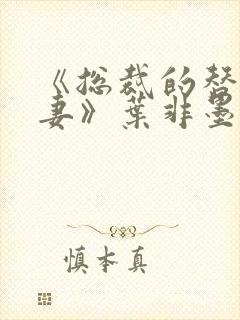 《总裁的替
妻》叶非墨
慎本真